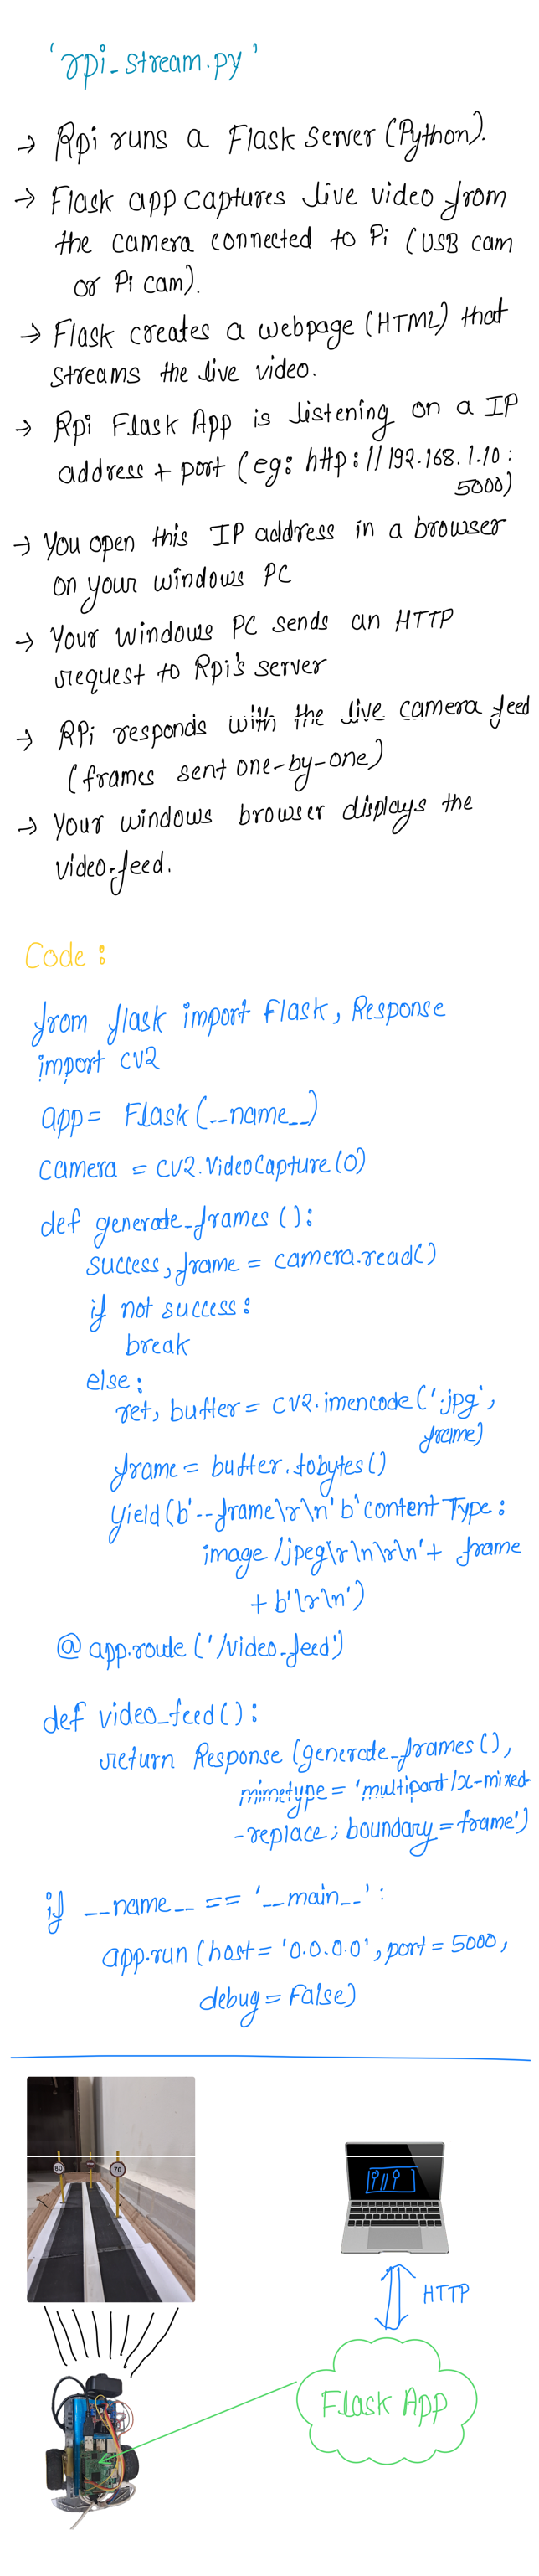 'rpi_stream.py'
→ Rpi runs a Flask server (Python).
→ Flask app captures live video from
the camera connected to Pi (USB cam
or Pi cam).
→ Flask creates a webpage (HTML) that
streams the live video.
→ Rpi Flask App is listening on a IP
address + port (eg: http://192.168.1.10:
5000)
→ You open this IP address in a browser
on your windows PC
→ Your windows PC sends an HTTP
request to Rpi's server
→ RPi responds with the live camera feed
(frames sent one-by-one)
→ Your windows browser displays the
video-feed.
Code:
from flask import Flask, Response
import cv2
app = Flask(__name__)
camera = cv2.VideoCapture(0)
def generate_frames():
success, frame = camera.read()
if not success:
break
else:
ret, buffer = cv2.imencode('.jpg',
frame)
frame = buffer.tobytes()
yield(b'--frame\r\n'b'content Type:
image/jpeg\r\n\r\n'+ frame
+ b'\r\n')
@app.route('/video_feed')
def video_feed():
return Response(generate_frames(),
mimetype = 'multipart/x-mixed-
-replace; boundary=frame')
if __name__ == '__main__':
app.run(host='0.0.0.0', port=5000,
debug=False)
80
70
HTTP
Flask App